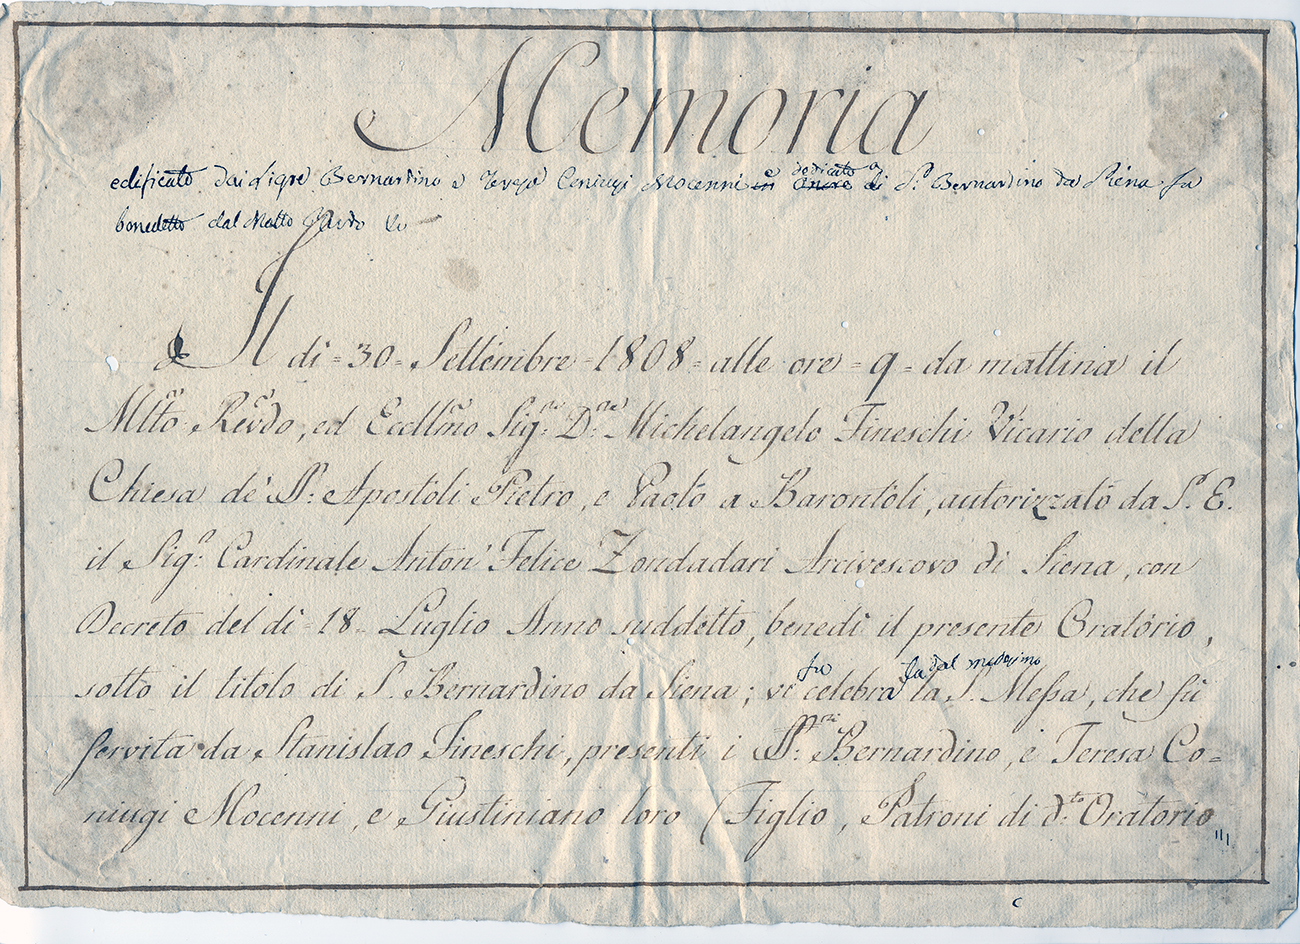 Memoria
edificato dai Sigre Bernardino e Teresa Coniugi Mocenni e dedicato a S. Bernardino da Siena fu
benedetto dal Molto
Il di = 30 = Settembre = 1808 = alle ore = 9 = da mattina il
Mlto Revdo, ed Eccllmo Sigre Dne Michelangelo Fineschi Vicario della
Chiesa de' SS. Apostoli Pietro, e Paolo a Barontoli, autorizzato da S. E.
il Sigr Cardinale Anton' Felice Zondadari Arcivescovo di Siena, con
Decreto del di = 18 = Luglio Anno suddetto, benedì il presente Oratorio,
sotto il titolo di S. Bernardino da Siena; vi fu celebrata dal medesimo la S. Messa, che fù
servita da Stanislao Fineschi, presenti i SSri Bernardino, e Teresa Co=
niugi Mocenni, e Giustiniano loro Figlio, Patroni di dto Oratorio